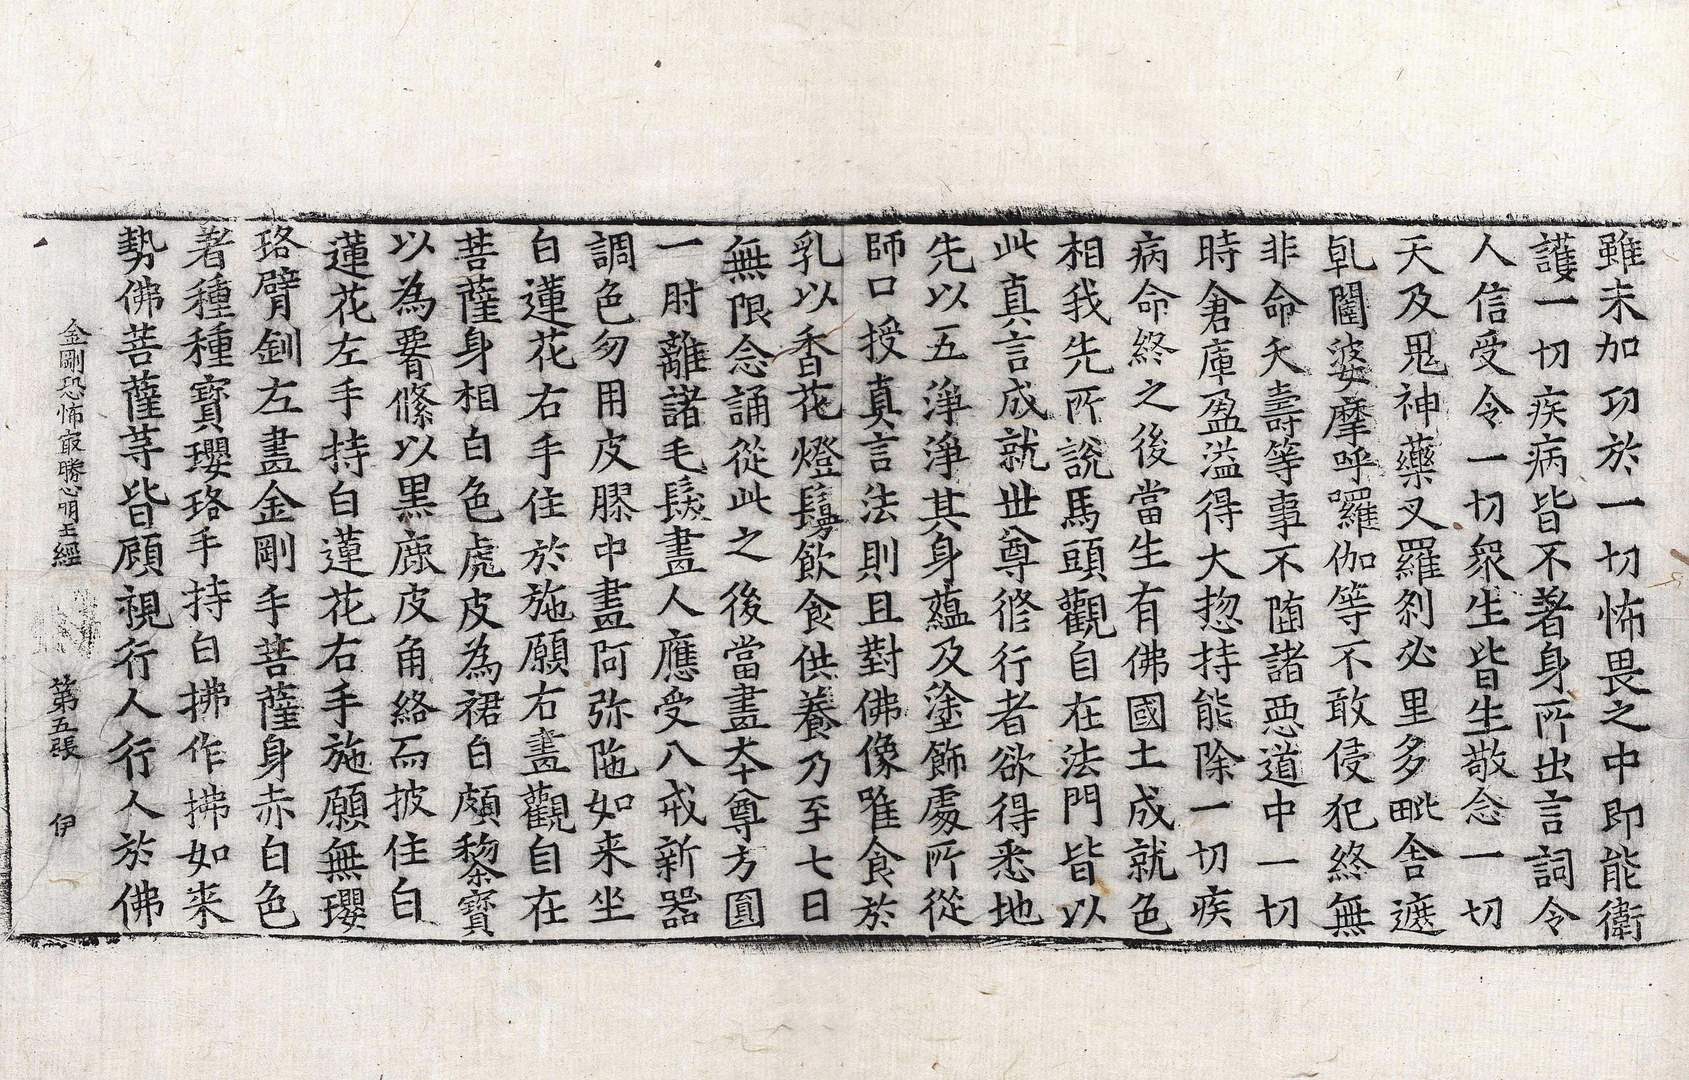 雖未加功於一切怖畏之中即能衛
護一切疾病皆不著身所出言詞令
人信受令一切衆生皆生敬念一切
天及鬼神藥叉羅剎必里多毗舍遮
乹闥婆摩呼囉伽等不敢侵犯終無
非命夭壽等事不隨諸惡道中一切
時倉庫盈溢得大惣持能除一切疾
病命終之後當生有佛國土成就色
相我先所說馬頭觀自在法門皆以
此真言成就世尊修行者欲得悉地
先以五淨淨其身蘊及塗飾處所從
師口授真言法則且對佛像唯食於
乳以香花燈鬘飲食供養乃至七日
無限念誦從此之後當畫本尊方圓
一肘離諸毛髮畫人應受八戒新器
調色勿用皮膠中畫阿弥陁如来坐
白蓮花右手住於施願右畫觀自在
菩薩身相白色虎皮為裙白頗黎寶
以為耎絛以黑鹿皮角絡而披住白
蓮花左手持白蓮花右手施願無瓔
珞臂釧左畫金剛手菩薩身赤白色
著種種寶瓔珞手持白拂作拂如来
勢佛菩薩等皆顧視行人行人於佛
金剛恐怖㝡勝心明王經 第五張 伊